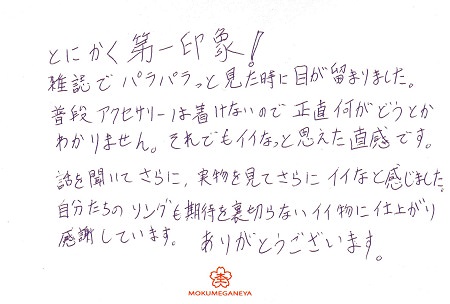 とにかく第一印象!
雑誌でパラパラっと見た時に目が留まりました。
普段アクセサリーは着けないので正直何がどうとか
わかりません。それでもイイなっと思えた直感です。
話を聞いてさらに、実物を見てさらにイイなと感じました。
自分たちのリングも期待を裏切らないイイ物に仕上がり
感謝しています。ありがとうございます。
MOKUMEGANEYA